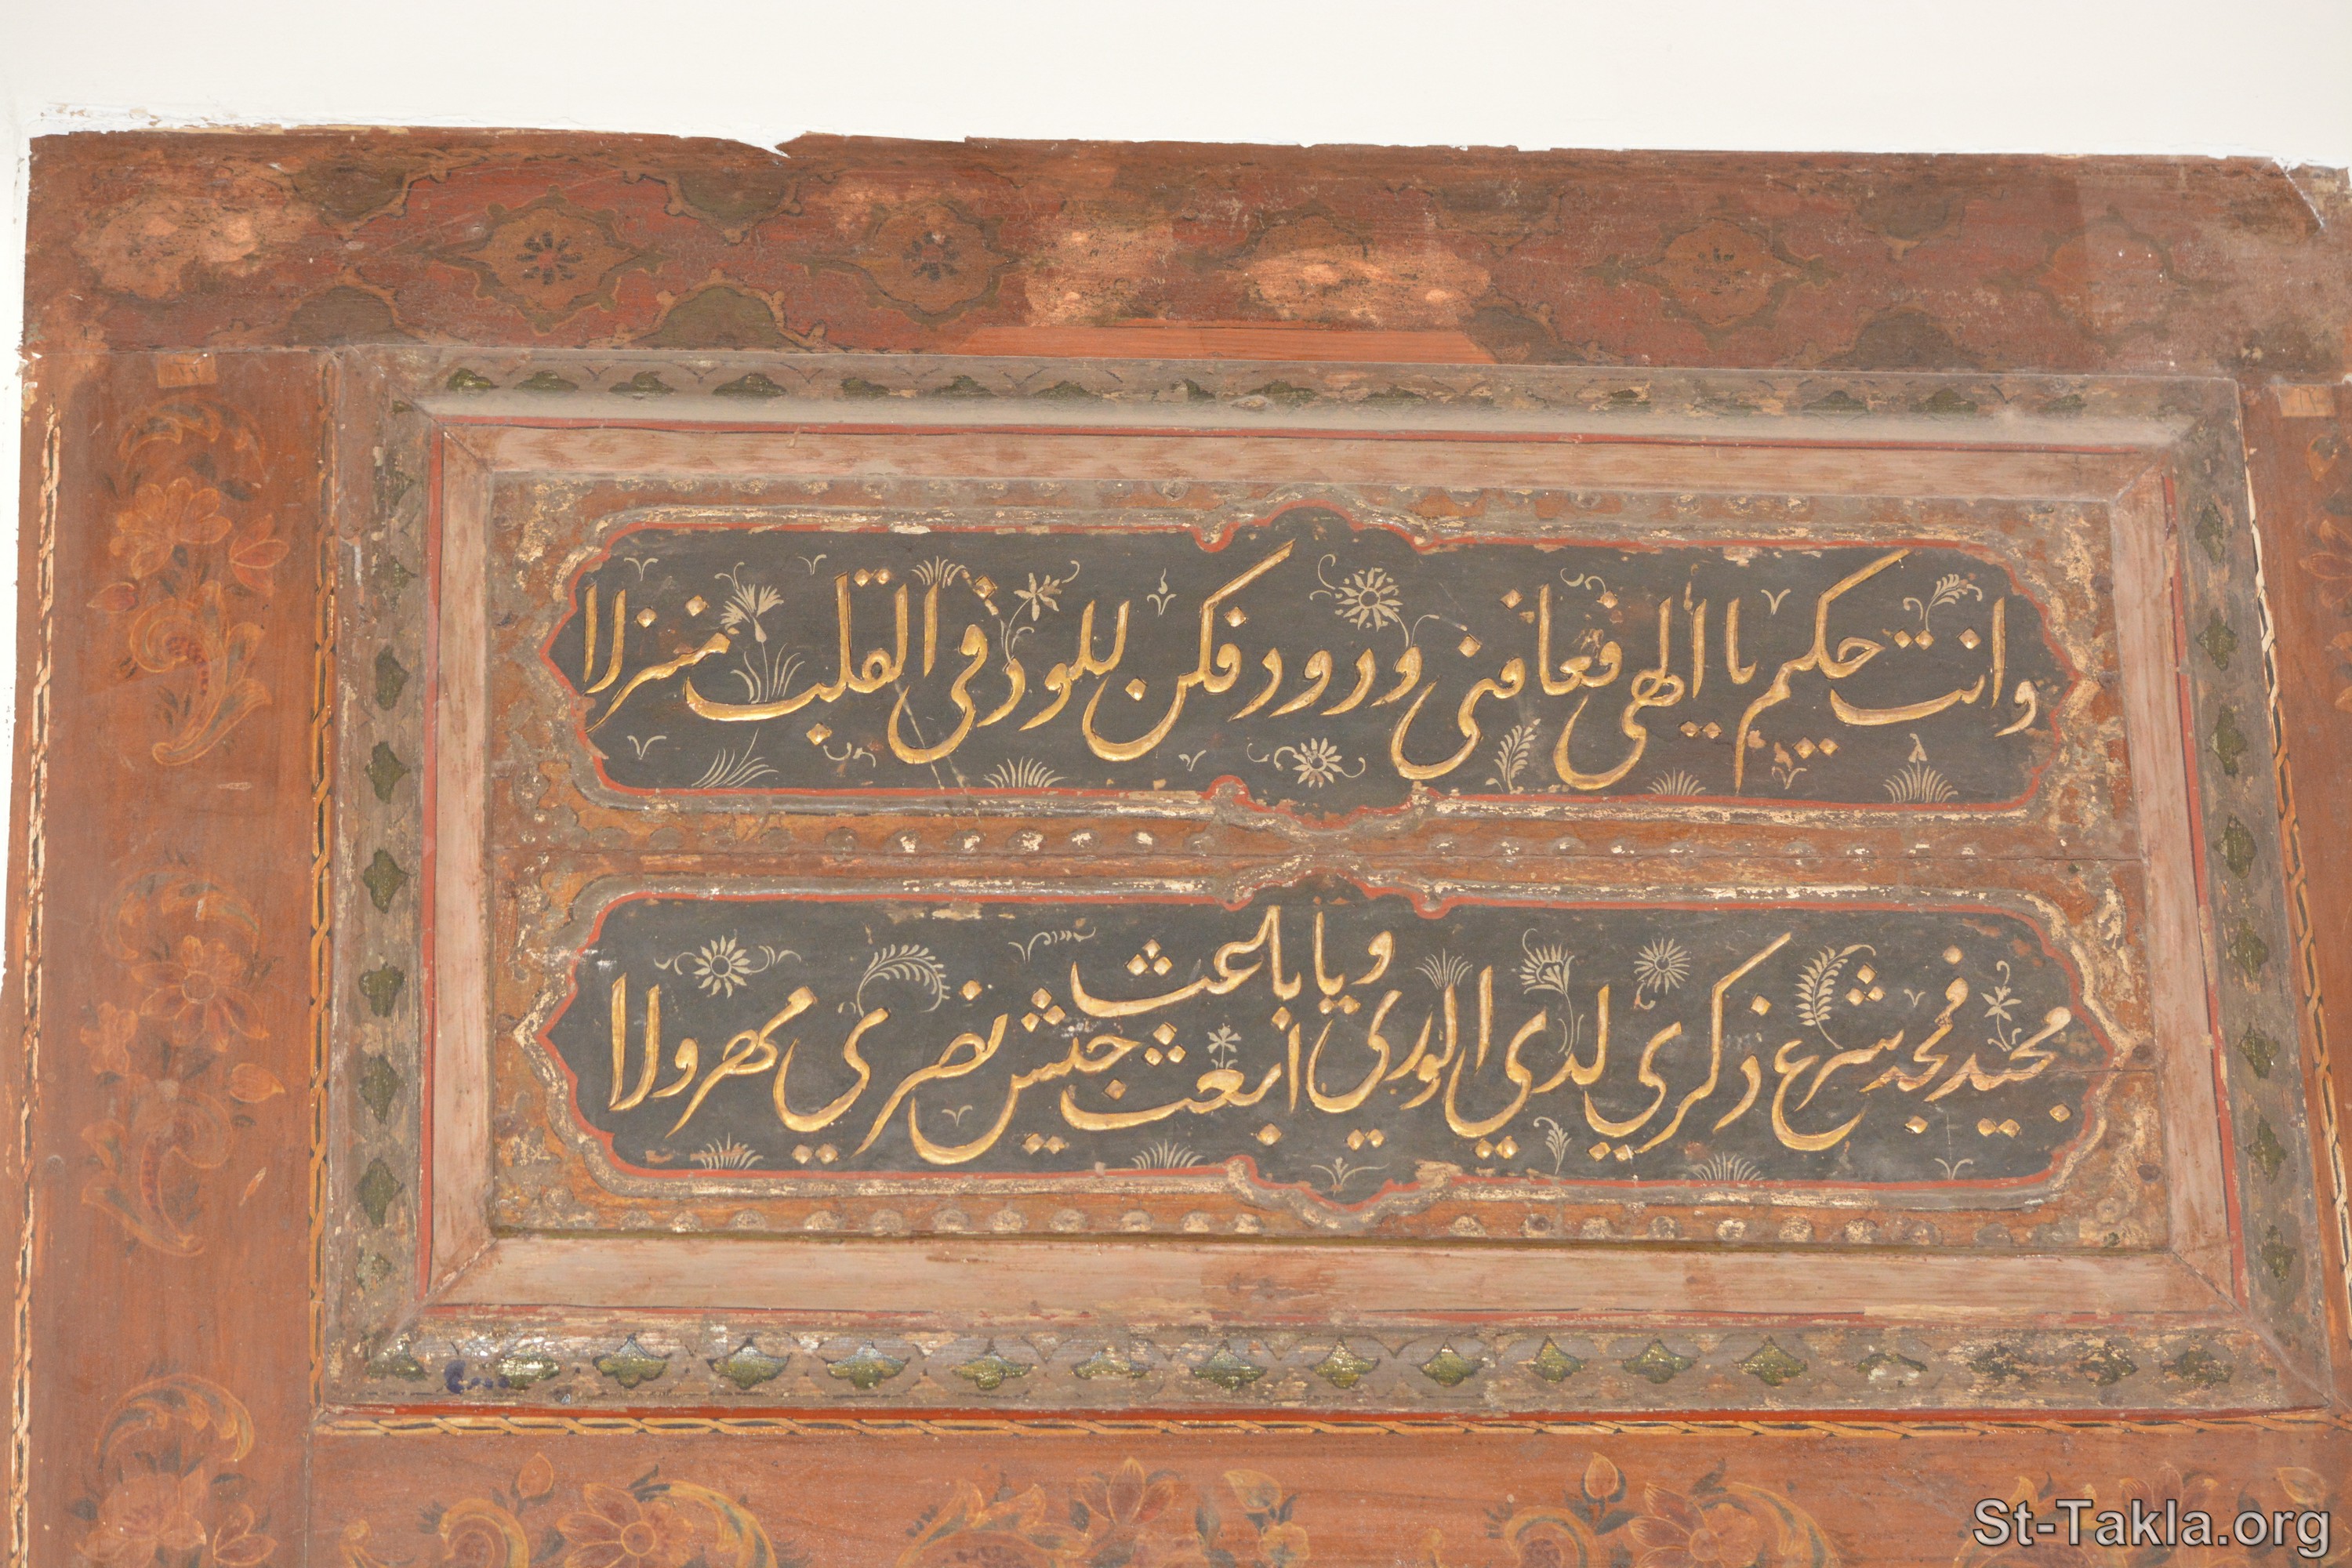 وانت حكيم يا الهي فعافني ودود فكن للود في القلب منزلا
مجيد فمجد شرع ذكري لدي الوري ويا باعث ابعث جيش نصري مهرولا
St-Takla.org